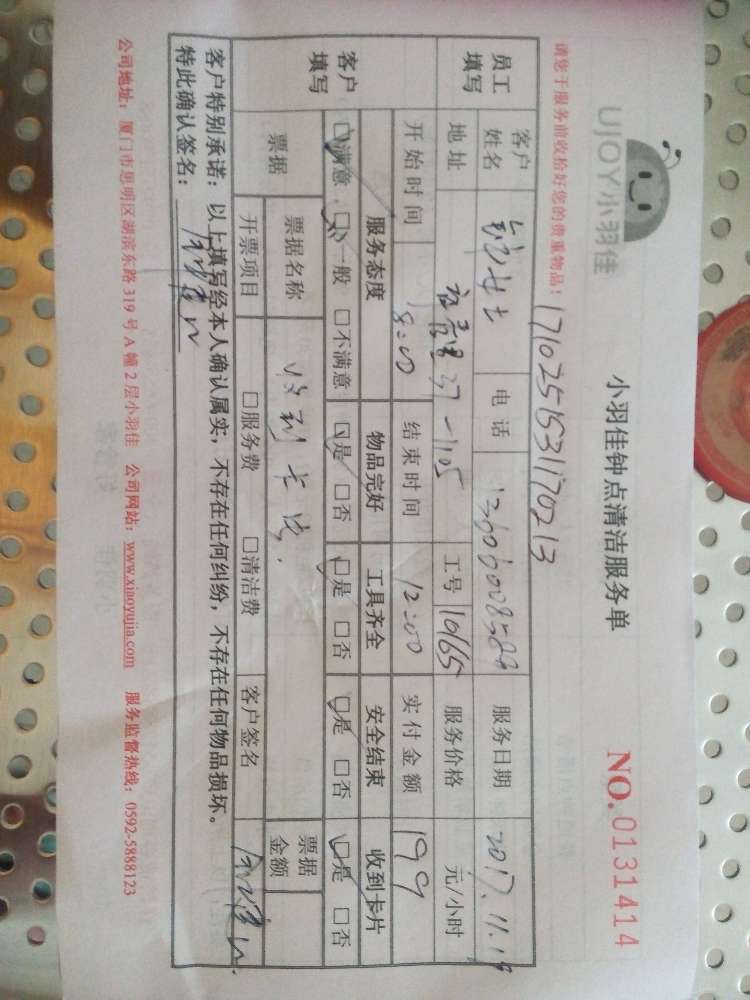 UJOY小羽佳
小羽佳钟点清洁服务单
NO. 0131414
请您于服务前收拾好您的贵重物品!
1710251531170213
员工填写 客户姓名 女士 电话 服务日期 2017.11.19
地址 37-1105 工号 10165 服务价格 元/小时
开始时间 8:00 结束时间 12:00 实付金额 199
客户填写 服务态度 物品完好 工具齐全 安全结束 收到卡片
□满意 □一般 □不满意 □是 □否 □是 □否 □是 □否 □是 □否
票据 票据名称 收到卡片 票据金额
开票项目 □服务费 □清洁费 客户签名
客户特别承诺：以上填写经本人确认属实，不存在任何纠纷，不存在任何物品损坏。
特此确认签名：
公司地址：厦门市思明区湖滨东路319号A幢2层小羽佳 公司网站：www.xiaoyujia.com 服务监督热线：0592-5888123